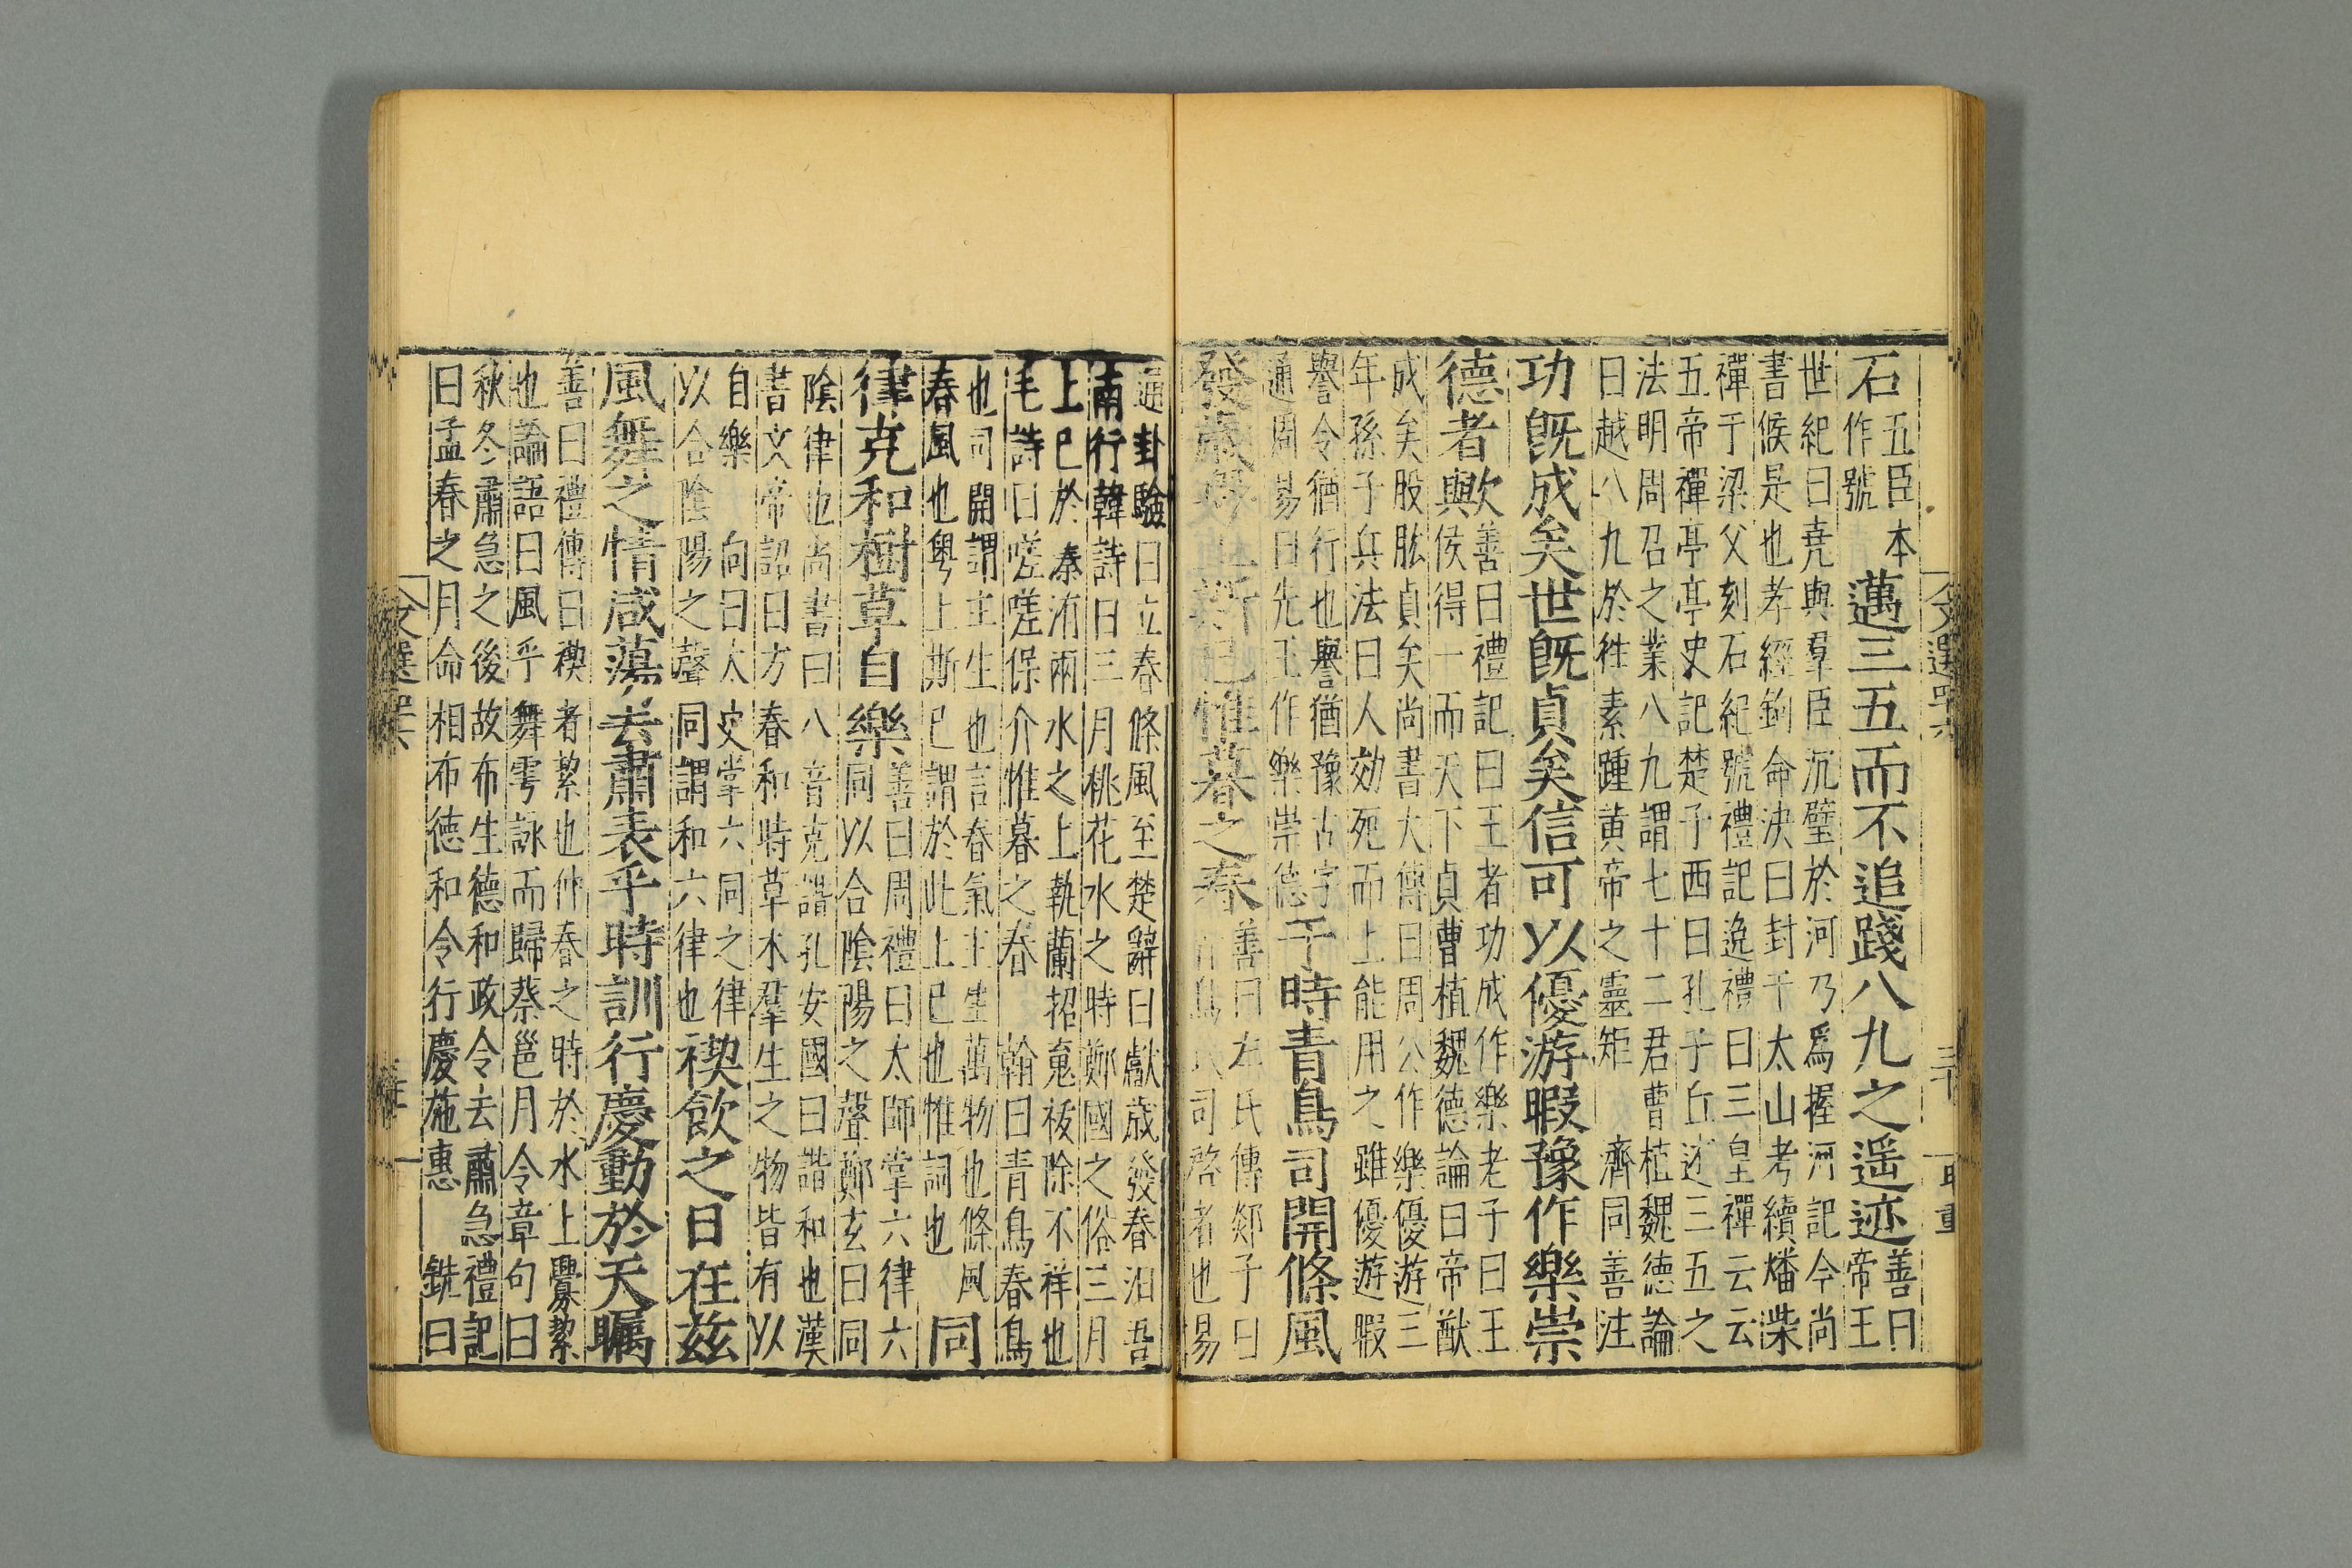 石五臣本作號邁三五而不追踐八九之遥迹善曰帝王
世紀曰堯與羣臣沉璧於河乃爲握河記今尚
書候是也孝經鉤命决曰封于太山考績燔柴
禪于梁父刻石紀號禮記逸禮曰三皇禪云云
五帝禪亭亭史記楚子西曰孔子丘述三五之
法明周召之業八九謂七十二君曹植魏德論
曰越八九於往素踵黄帝之靈矩 濟同善注
功旣成矣世旣貞矣信可以優游暇豫作樂崇
德者歟善曰禮記曰王者功成作樂老子曰王
侯得一而天下貞曹植魏德論曰帝猷
成矣股肱貞矣尚書大傳曰周公作樂優游三
年孫子兵法曰人効死而上能用之雖優游暇
譽令猶行也譽猶豫古字
通周易曰先王作樂崇德于時青鳥司開條風
發歲 斯巳惟暮之春善曰左氏傳郯子曰
司啓者也易
通卦驗曰立春條風至楚辭曰獻歲發春汨吾
南行韓詩曰三月桃花水之時鄭國之俗三月
上巳於溱洧兩水之上執蘭招䰟祓除不祥也
毛詩曰嗟嗟保介惟暮之春 翰曰青鳥春鳥
也司開謂主生也言春氣主生萬物也條風
春風也粤上斯巳謂於此上巳也惟詞也 同
律克和樹草自樂善曰周禮曰太師掌六律六
同以合陰陽之聲鄭玄曰同
陰律也尚書曰八音克諧孔安國曰諧和也漢
書文帝詔曰方春和時草木羣生之物皆有以
自樂 向曰太史掌六同之律
以合陰陽之聲同謂和六律也禊飲之日在兹
風舞之情咸蕩去肅表乎時訓行慶動於天矚
善曰禮傳曰禊者絜也仲春之時於水上釁絜
也論語曰風乎舞雩詠而歸蔡邕月令章句曰
秋冬肅急之後故布生德和政令去肅急禮記
曰孟春之月命相布德和令行慶施惠 銑曰